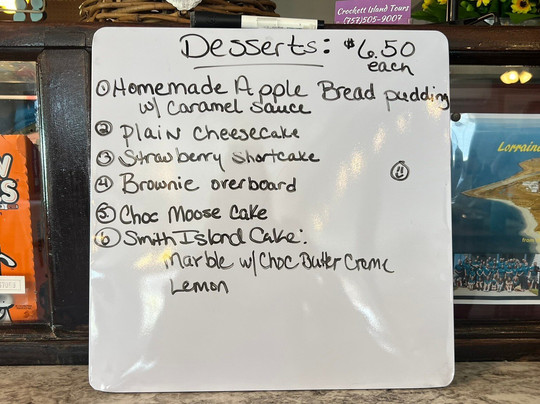 Crockett Island Tours
(757)505-9007
Desserts: $6.50
each
① Homemade Apple Bread pudding
w/ Caramel Sauce
② Plain Cheesecake
③ Strawberry Shortcake
④ Brownie overboard
⑤ Choc Moose Cake
⑥ Smith Island Cake:
Marble w/Choc Butter Creme
Lemon
Lorraine